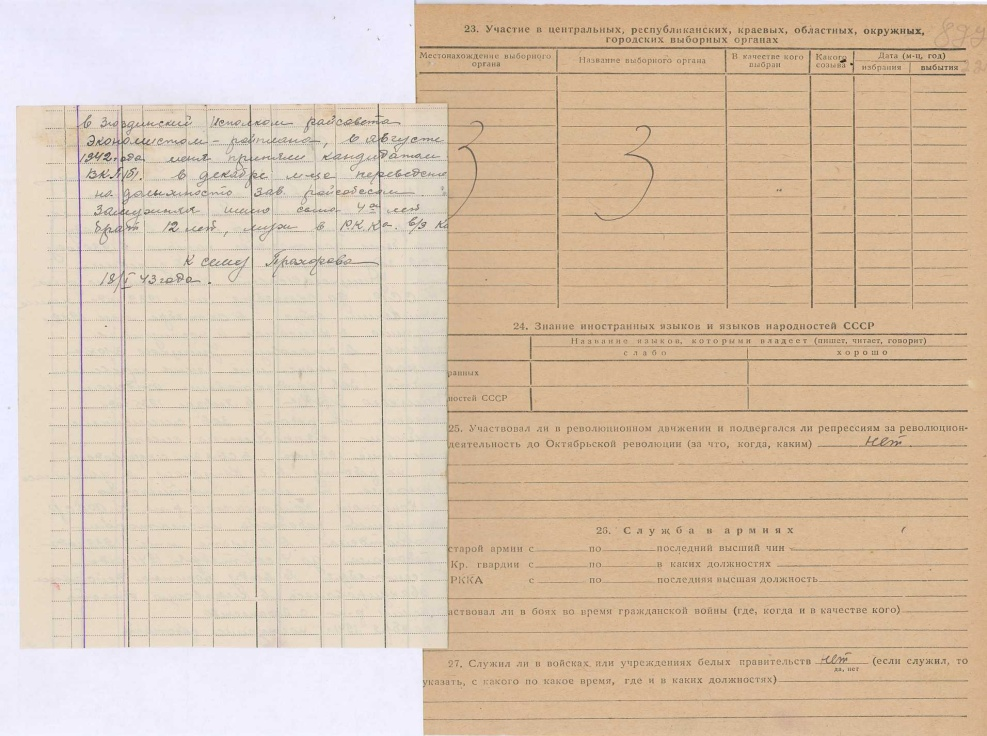 в Зюздинский Исполком райсовета
Экономистом - райплана, в августе
1942 года меня приняли кандидатом
ВКП(б). в декабре м-це переведена
на должность зав. райсобесом.
Замужняя имею сына 4ох лет
брат 12 лет, муж в РККА.
К сему Прохорова
18/I 43 года.
23. Участие в центральных, республиканских, краевых, областных, окружных,
городских выборных органах
Местонахождение выборного органа
Название выборного органа
В качестве кого выбран
Какого созыва
Дата (м-ц, год)
избрания
выбытия
24. Знание иностранных языков и языков народностей СССР
Название языков, которыми владеет (пишет, читает, говорит)
слабо
хорошо
ранных
ностей СССР
25. Участвовал ли в революционном движении и подвергался ли репрессиям за революцион-
деятельность до Октябрьской революции (за что, когда, каким) нет
26. Служба в армиях
старой армии с по последний высший чин
Кр. гвардии с по в каких должностях
РККА с по последняя высшая должность
аствовал ли в боях во время гражданской войны (где, когда и в качестве кого)
27. Служил ли в войсках или учреждениях белых правительств нет (если служил, то
да, нет
указать, с какого по какое время, где и в каких должностях)